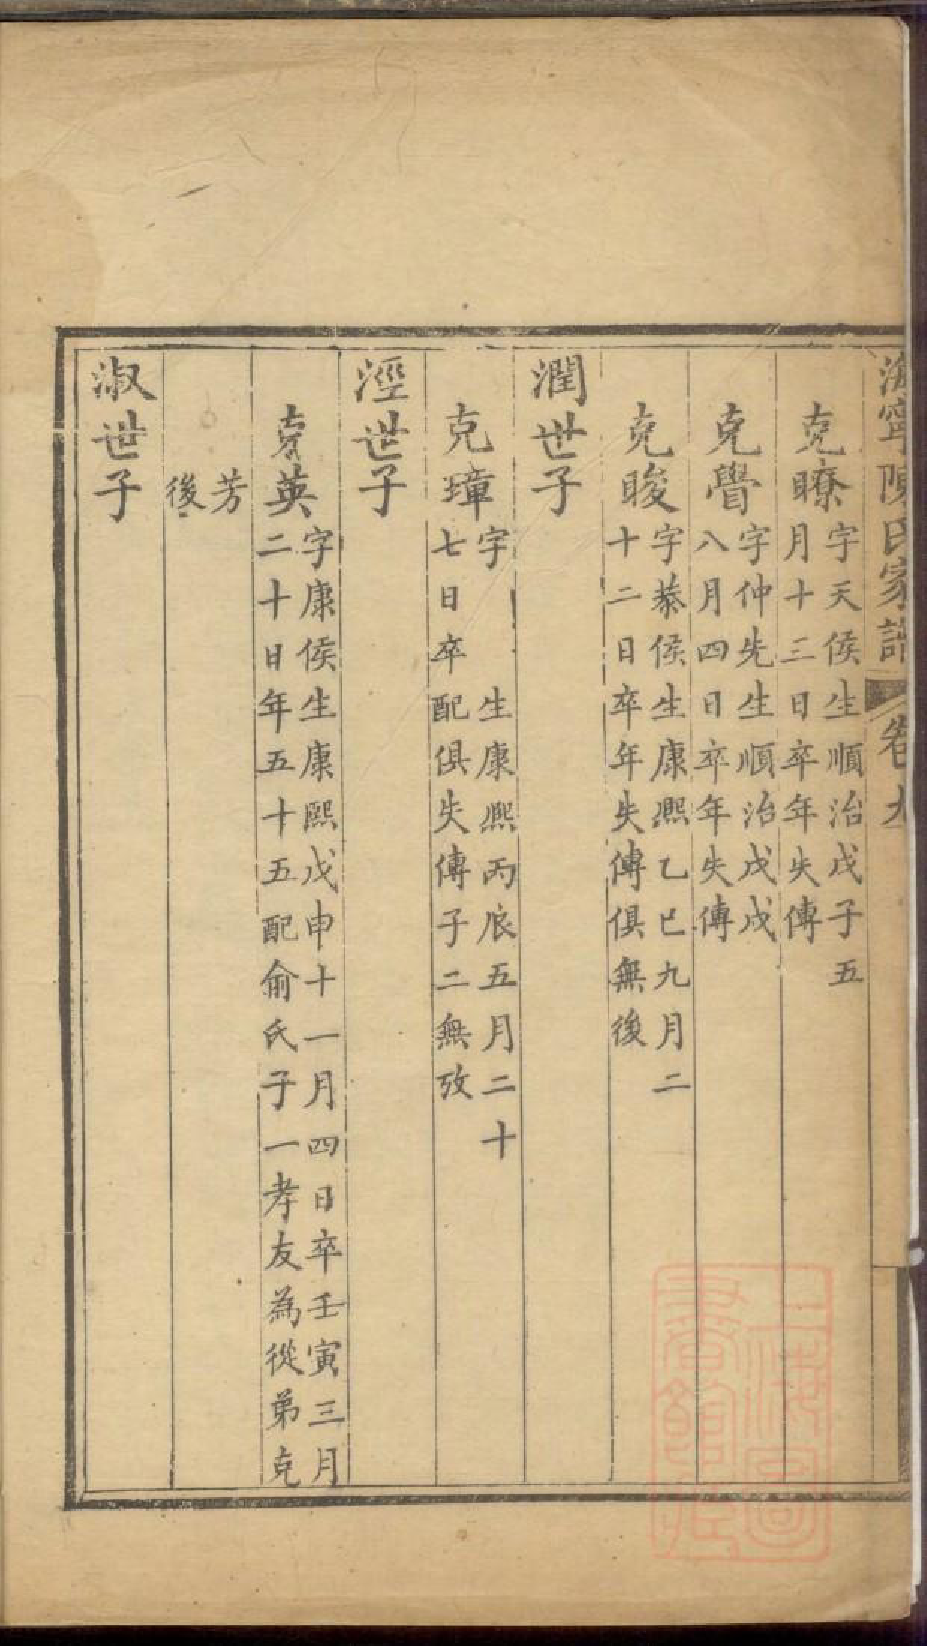 海寧陳氏家譜 卷九
克瞭字天侯生順治戊子五
月十三日卒年失傳
克覺字仲先生順治戊戌
八月四日卒年失傳
克晙字恭侯生康熙乙巳九月二
十二日卒年失傳俱無後
潤世子
克璋字 生康熙丙辰五月二十
七日卒配俱失傳子二無攷
涇世子
克英字康侯生康熙戊申十一月四日卒壬寅三月
二十日年五十五配俞氏子一孝友為從弟克
芳
後
淑世子
上海圖
書館藏